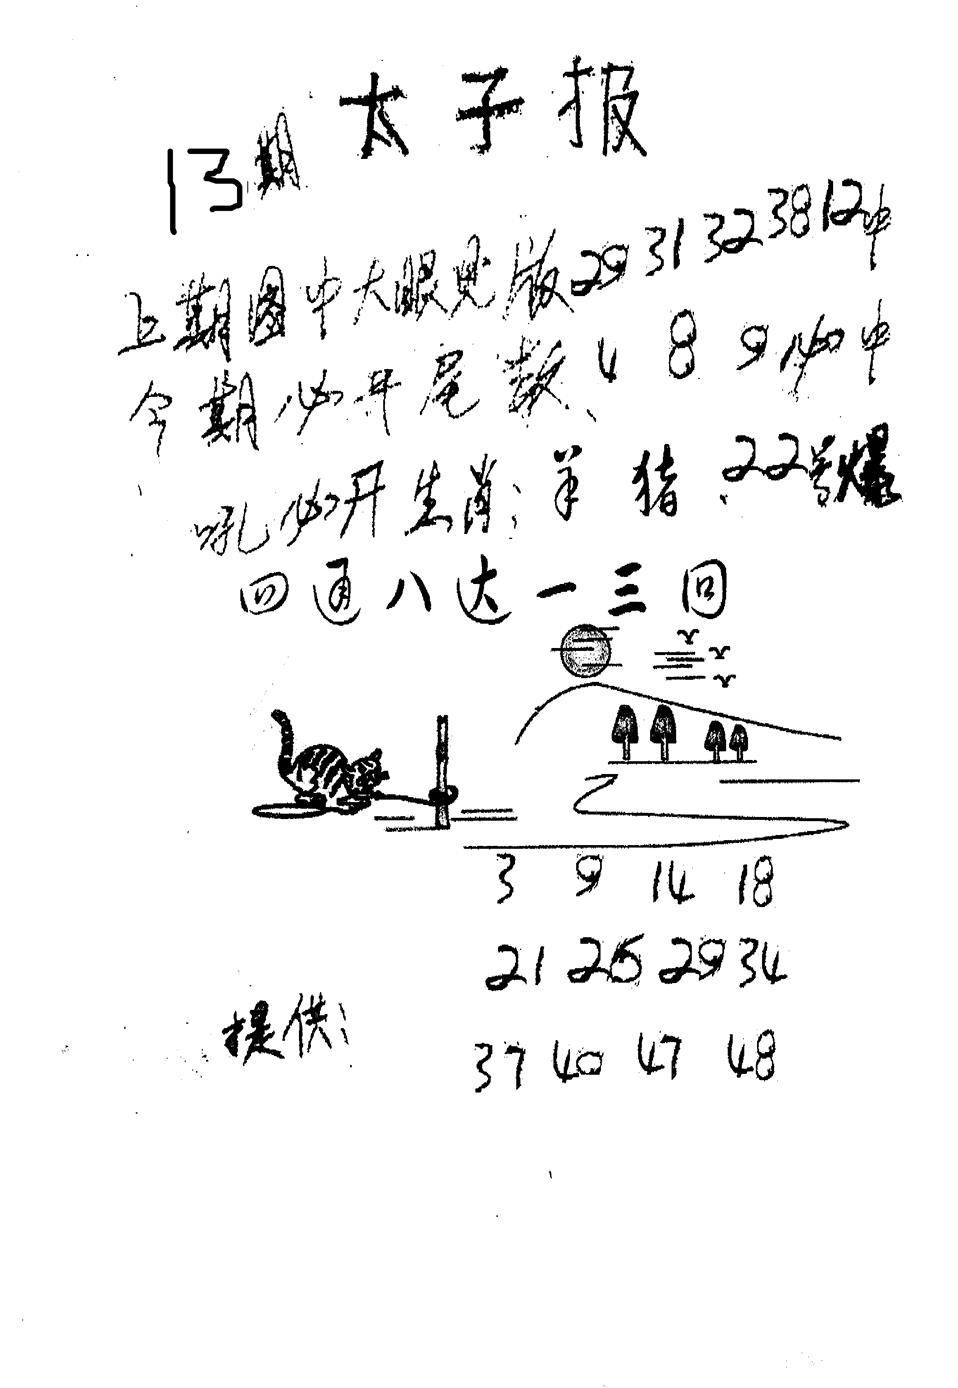 太子报
13期
上期图中大眼见版 29 31 32 38 12中
今期必开尾数、4 8 9必中
吼必开生肖：羊 猪、22号爆
四通八达一三回
3 9 14 18
21 26 29 34
提供：
37 40 47 48